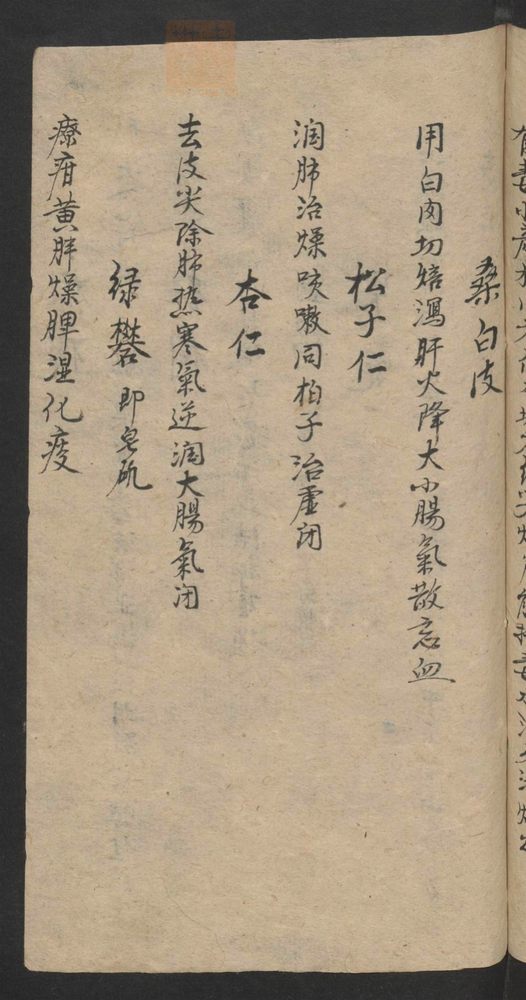 桑白皮
用白肉切焙瀉肝火降大小腸氣散宿血
松子仁
润肺治燥咳嗽同柏子治虚闭
杏仁
去皮尖除肺热寒氣逆润大腸氣闭
绿礬 即皂矾
療疳黄胖燥脾濕化痰